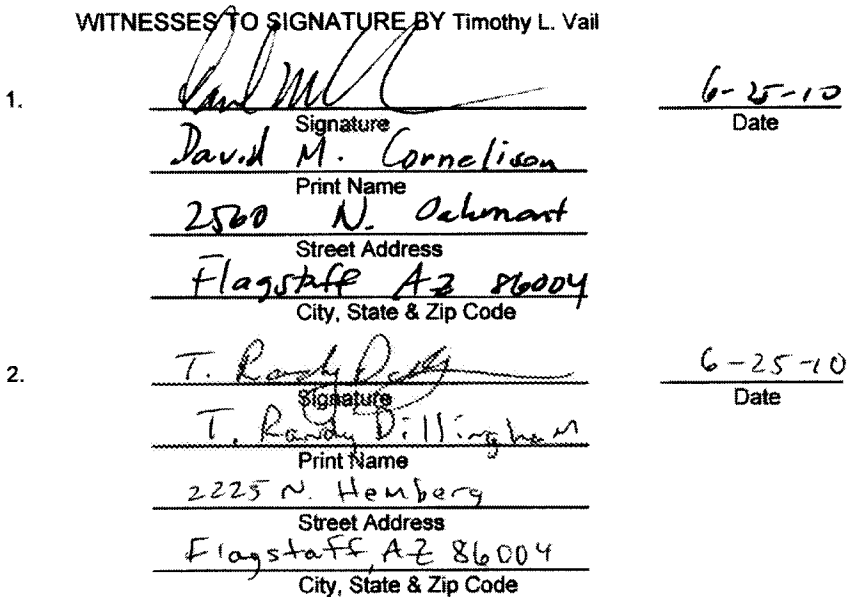 WITNESSES TO SIGNATURE BY Timothy L. Vail
1. 6-25-10
Signature Date
David M. Cornelison
Print Name
2560 N. Oakmont
Street Address
Flagstaff AZ 86004
City, State & Zip Code
2. T. Randy 6-25-10
Signature Date
T. Randy Dillingham
Print Name
2225 N. Hemberg
Street Address
Flagstaff, AZ 86004
City, State & Zip Code